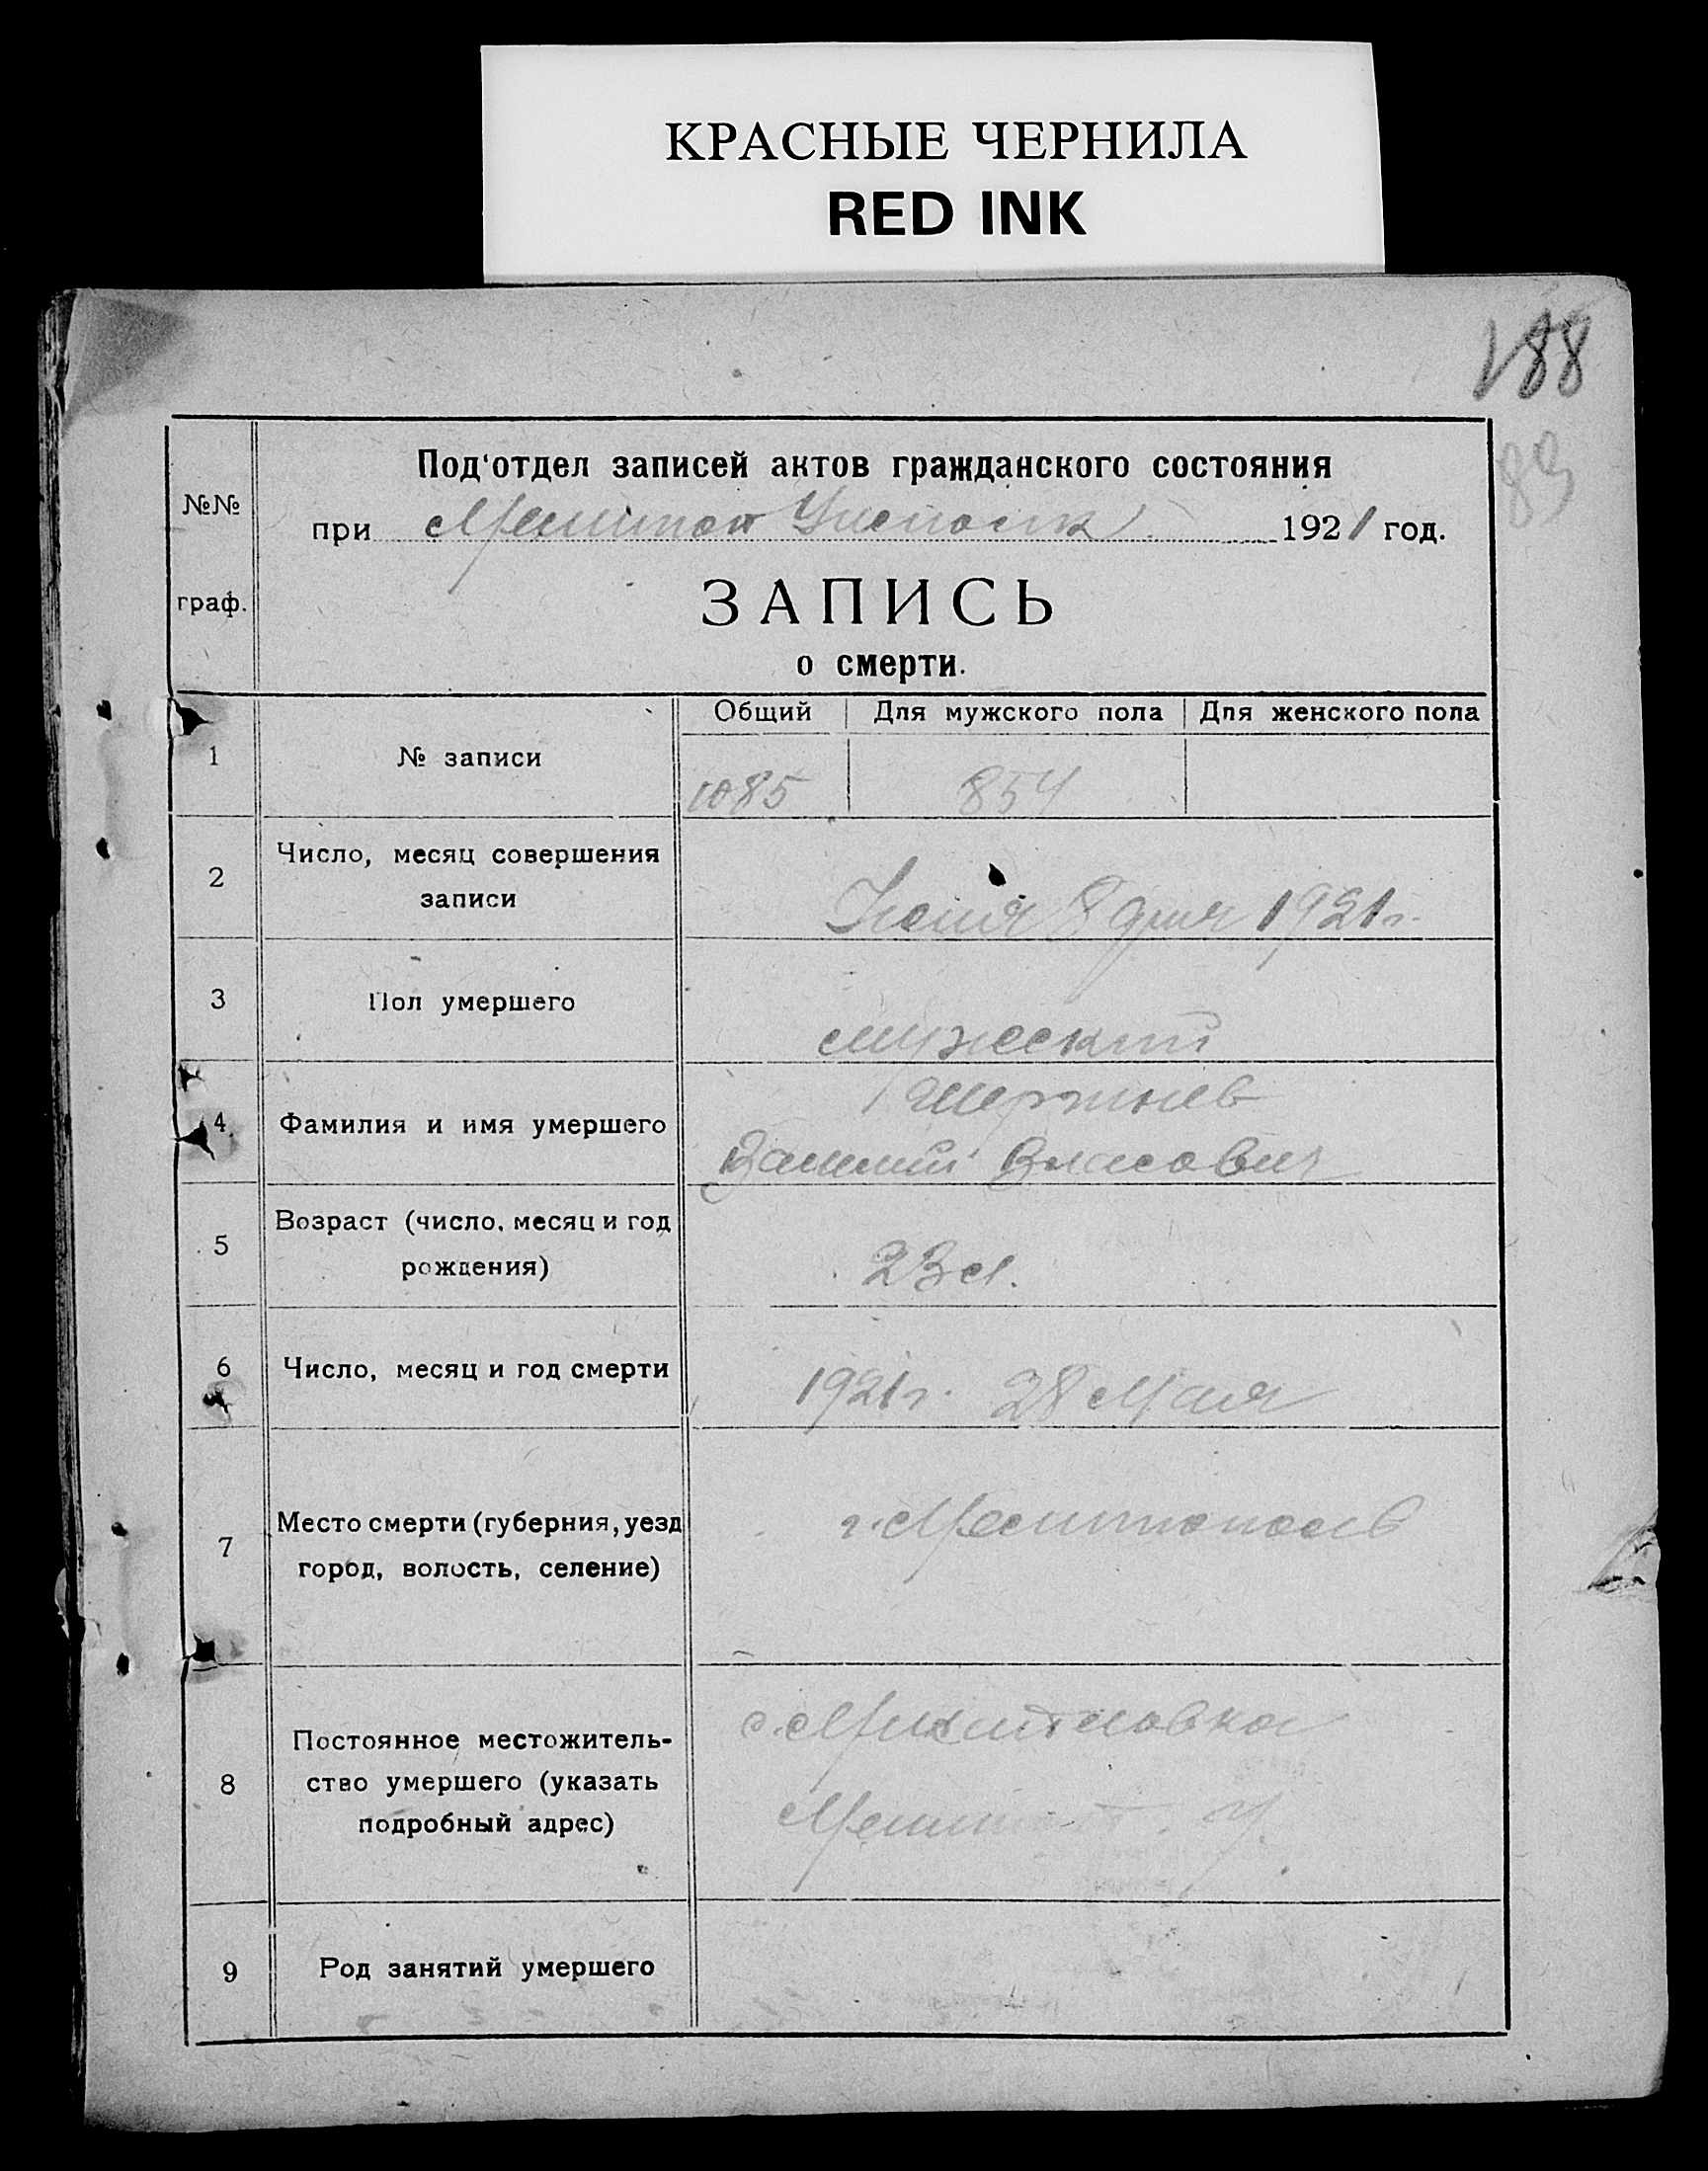 КРАСНЫЕ ЧЕРНИЛА
RED INK
188
83
№№
граф.
Под'отдел записей актов гражданского состояния
при Мелитоп Уисполк 1921 год.
ЗАПИСЬ
о смерти.
Общий Для мужского пола Для женского пола
1 № записи 1085 854
2 Число, месяц совершения
записи
Июня 8 дня 1921 г.
3 Пол умершего мужеский
4 Фамилия и имя умершего
Василий Власович
5 Возраст (число, месяц и год
рождения)
23 л.
6 Число, месяц и год смерти 1921 г. 28 Мая
7 Место смерти (губерния, уезд
город, волость, селение)
г. Мелитополь
8 Постоянное местожитель-
ство умершего (указать
подробный адрес)
с. Михайловка
Мелит у.
9 Род занятий умершего